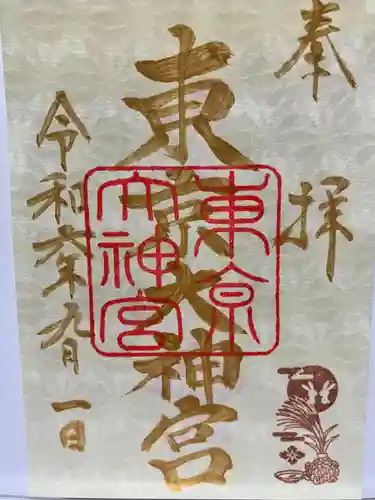 奉拝
東京大神宮
東京大神宮
令和六年九月一日